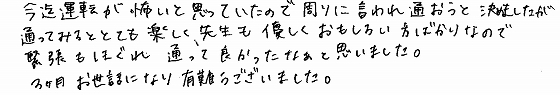 今迄運転が怖いと思っていたので周りに言われ通おうと決意したが
通ってみるととても楽しく先生も優しくおもしろい方ばかりなので
緊張もほぐれ 通って良かったなぁと思いました。
3ヶ月 お世話になり有難うございました。